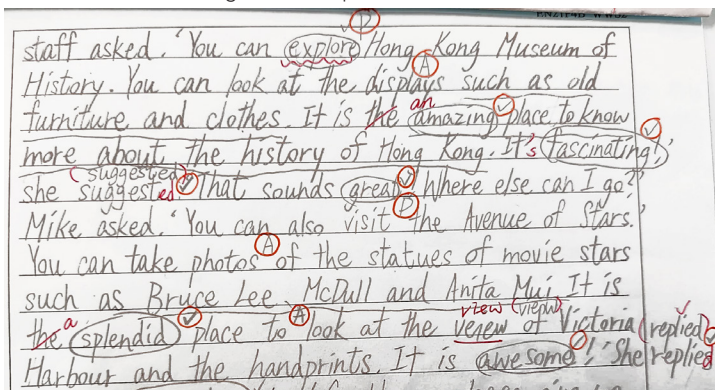 staff asked. 'You can explore Hong Kong Museum of
History. You can look at the displays such as old
furniture and clothes. It is the an amazing place to know
more about the history of Hong Kong. It's fascinating!'
(suggested)
she suggested 'That sounds great! Where else can I go?'
Mike asked. 'You can also visit the Avenue of Stars.'
You can take photos of the statues of movie stars
such as Bruce Lee, McDull and Anita Mui. It is
the a splendid place to look at the veiew view (view) of Victoria (replied)
Harbour and the handprints. It is awesome!' She replied